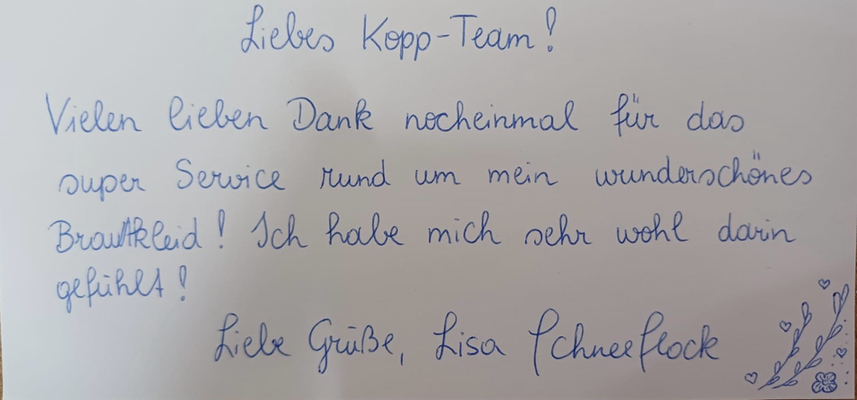 Liebes Kopp-Team!
Vielen lieben Dank nocheinmal für das
super Service rund um mein wunderschönes
Brautkleid! Ich habe mich sehr wohl darin
gefühlt!
Liebe Grüße, Lisa Schneeflock